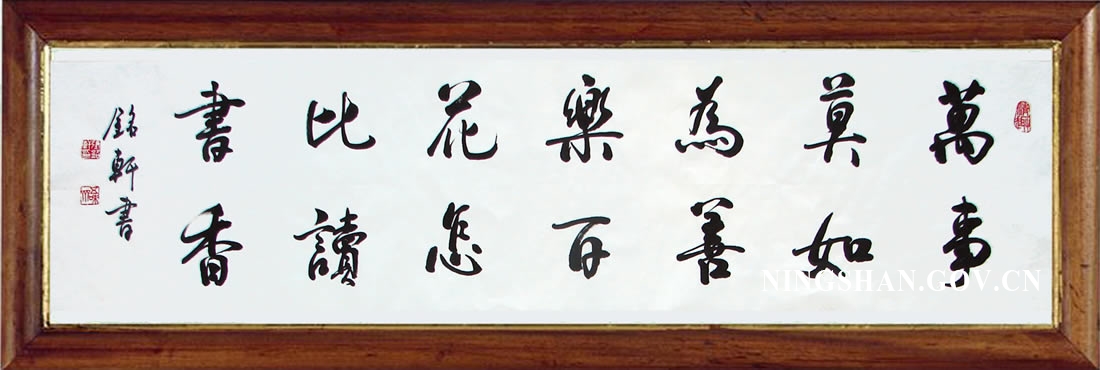 萬事
莫如
為善
樂百
花怎
比讀
書香
銘軒書
NINGSHAN.GOV.CN